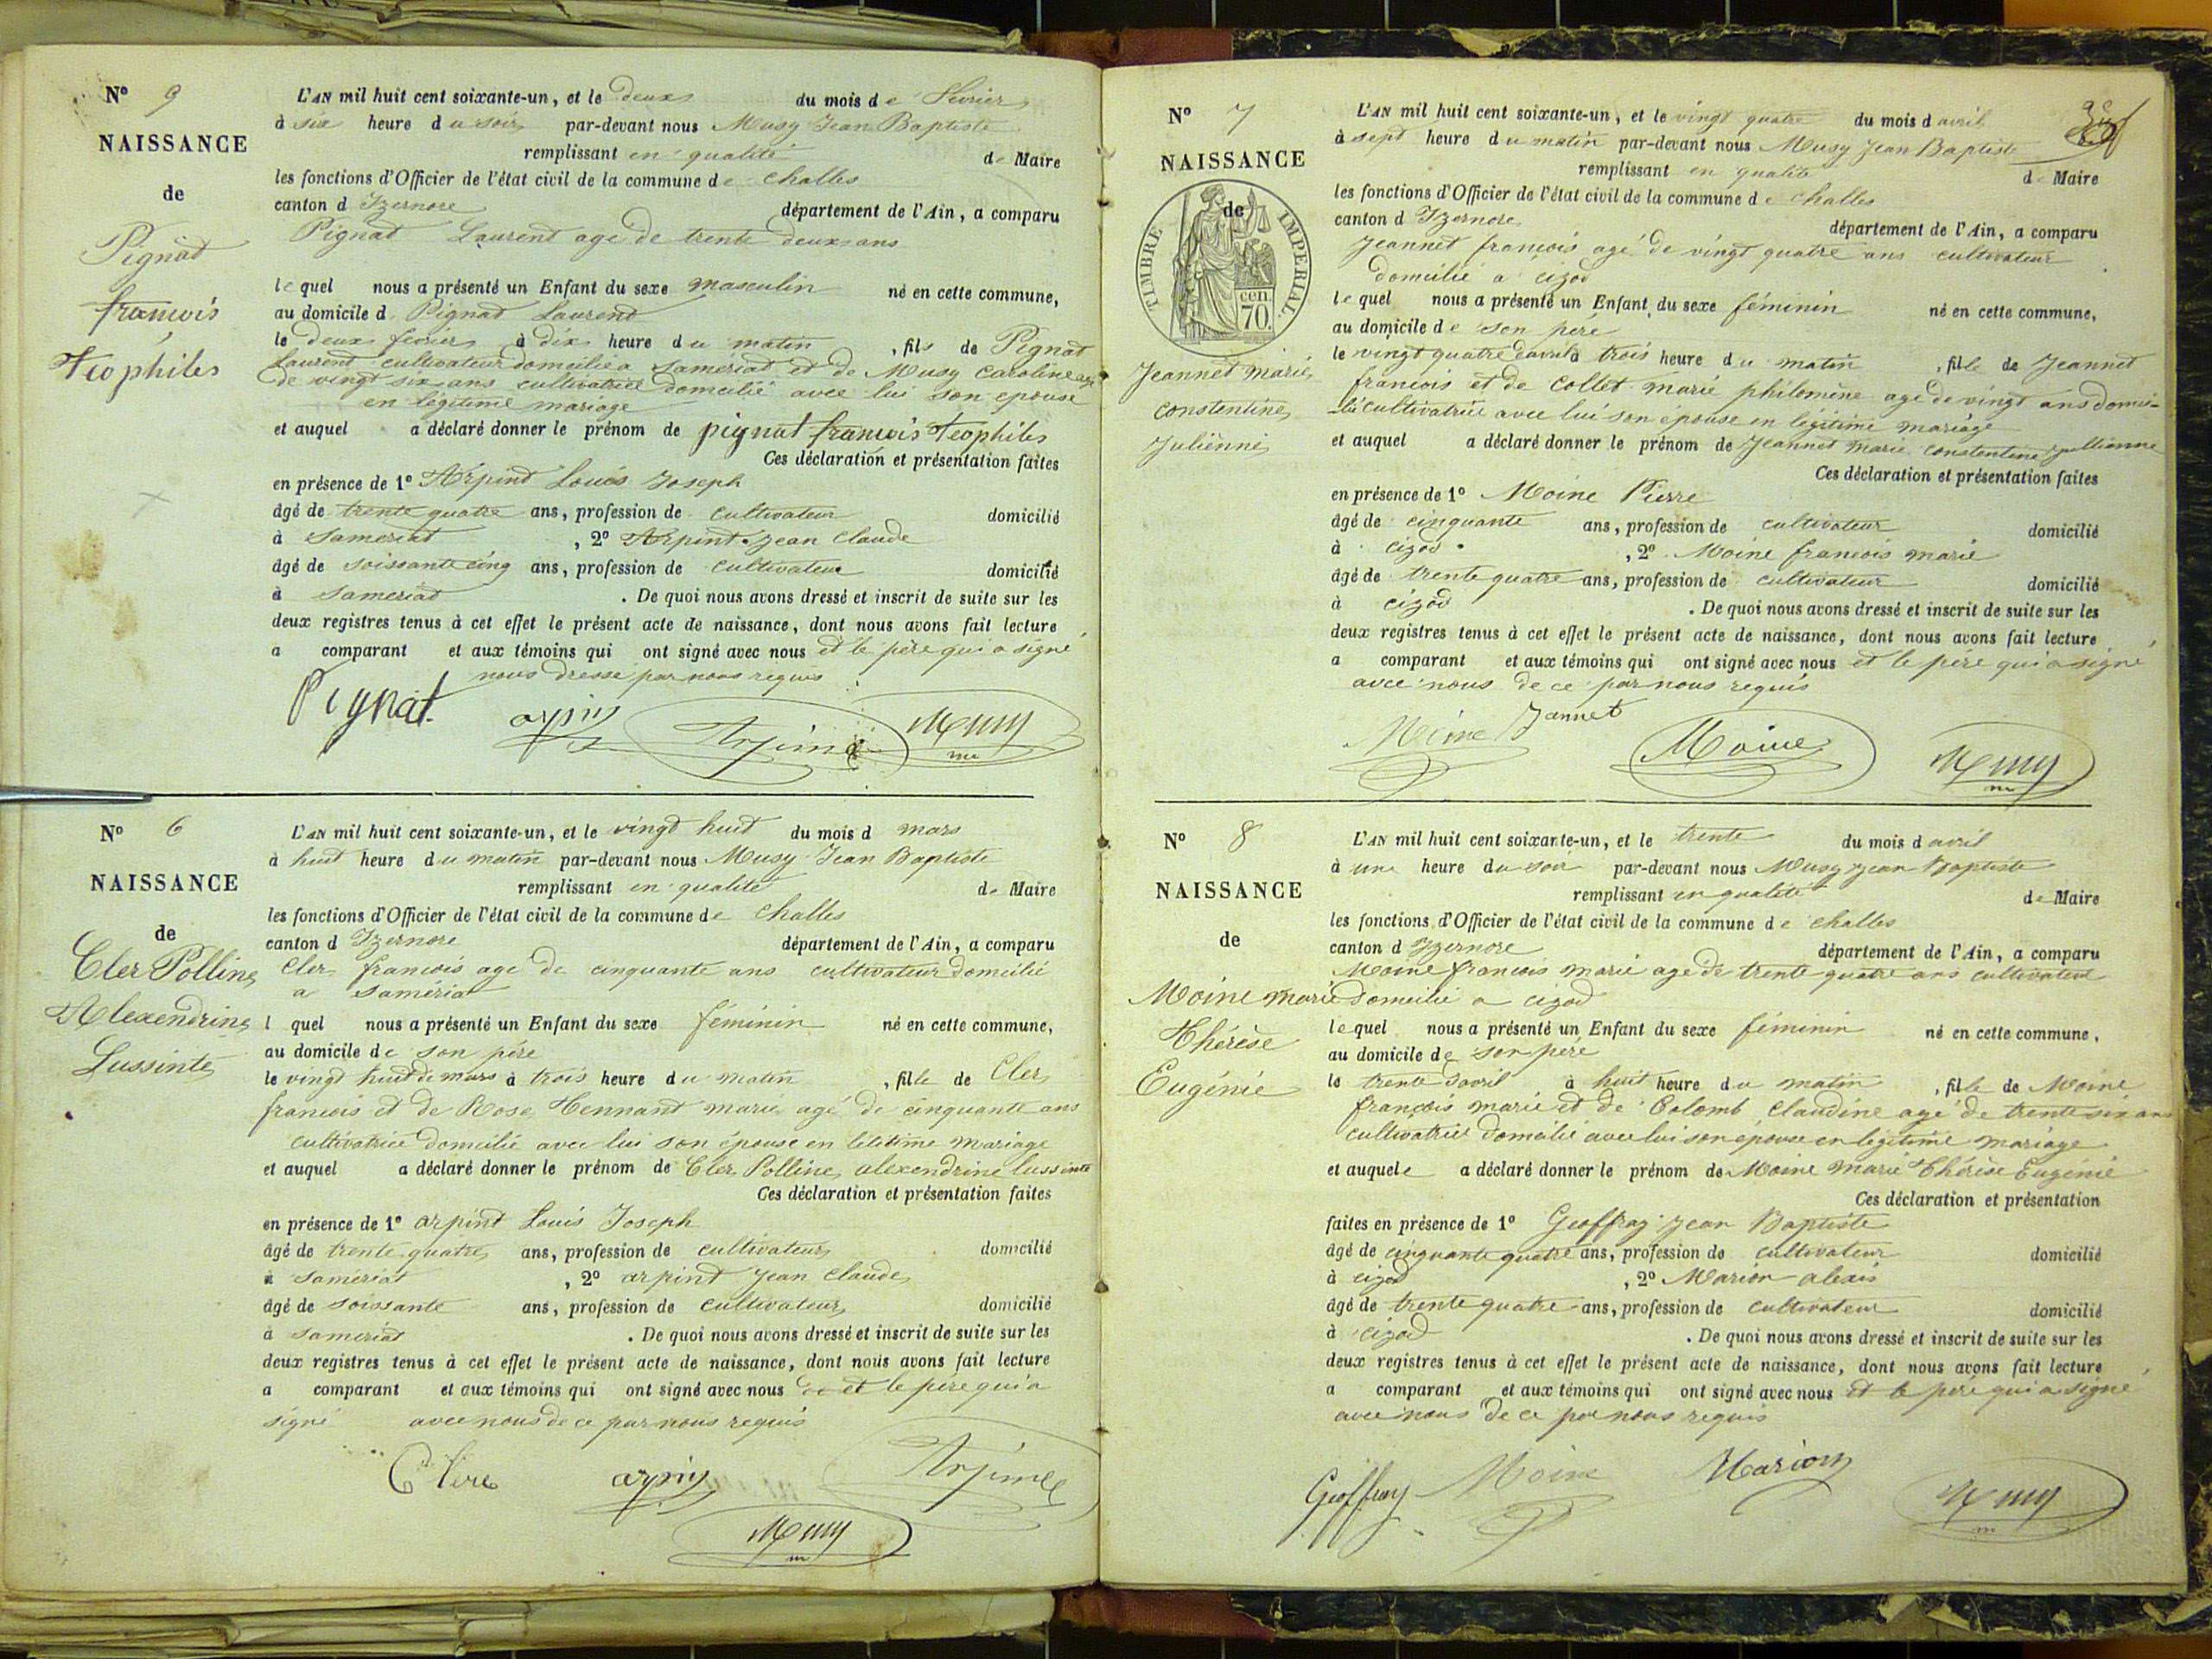 N° 9
NAISSANCE
de
Pignat
francois
Teophiles
L'AN mil huit cent soixante-un, et le deux du mois de Fevrier
à six heure du soir par-devant nous Musy Jean Baptiste
remplissant en qualité de Maire
les fonctions d'Officier de l'état civil de la commune de Challes
canton d Izernore département de l'Ain, a comparu
Pignat Laurent age de trente deux ans
le quel nous a présenté un Enfant du sexe masculin né en cette commune,
au domicile d Pignat Laurent
le deux fevrier à dix heure du matin , fils de Pignat
Laurent cultivateur domcilié a samériat et de Musy Caroline age
de vingt six ans cultivatrice domcilié avec lui son epouse
en légitime mariage
et auquel a déclaré donner le prénom de pignat francois Teophiles
Ces déclaration et présentation faites
en présence de 1° Arpint Louis Joseph
âgé de trente quatre ans, profession de cultivateur domicilié
à Sameriat , 2° Arpint Jean Claude
âgé de soissante cinq ans, profession de cultivateur domicilié
à Sameriat . De quoi nous avons dressé et inscrit de suite sur les
deux registres tenus à cet effet le présent acte de naissance, dont nous avons fait lecture
a comparant et aux témoins qui ont signé avec nous et le père qui a signé
nous dresse par nous requis
Pignat. Musy
N° 6
NAISSANCE
de
Cler Polline
Alexendrine
Lussinte
L'AN mil huit cent soixante-un, et le vingt huit du mois d mars
à huit heure du matin par-devant nous Musy Jean Baptiste
remplissant en qualité de Maire
les fonctions d'Officier de l'état civil de la commune de Challes
canton d Izernore département de l'Ain, a comparu
Cler francois age de cinquante ans cultivateur domcilié
a samériat
l quel nous a présenté un Enfant du sexe féminin né en cette commune,
au domicile de son père
le vingt huit de mars à trois heure du matin , fille de Cler
francois et de Rose Hennant marie agé de cinquante ans
cultivatrice domcilié avec lui son épouse en letitime mariage
et auquel a déclaré donner le prénom de Cler Polline alexendrine lussinte
Ces déclaration et présentation faites
en présence de 1° arpint Louis Joseph
âgé de trente quatre ans, profession de cultivateur domicilié
à samériat , 2° arpint Jean Claude
âgé de soissante ans, profession de cultivateur domicilié
à sameriat . De quoi nous avons dressé et inscrit de suite sur les
deux registres tenus à cet effet le présent acte de naissance, dont nous avons fait lecture
a comparant et aux témoins qui ont signé avec nous et le père qui a
signé avec nous de ce par nous requis
Musy
N° 7
NAISSANCE
de
TIMBRE IMPERIAL.
cen.
70.
Jeannet marie
constentine
Julienne
L'AN mil huit cent soixante-un, et le vingt quatre du mois d avril
à sept heure du matin par-devant nous Musy Jean Baptiste
remplissant en qualité de Maire
les fonctions d'Officier de l'état civil de la commune de challes
canton d Izernore département de l'Ain, a comparu
Jeannet francois agé de vingt quatre ans cultivateur
domcilié a cizod
le quel nous a présenté un Enfant du sexe féminin né en cette commune,
au domicile de son père
le vingt quatre davril à trois heure du matin , fille de Jeannet
francois et de Collet marie philomène age de vingt ans domci-
lié cultivatrice avec lui son épouse en légitime mariage
et auquel a déclaré donner le prénom de Jeannet marie constentine jullienne
Ces déclaration et présentation faites
en présence de 1° Moine Pierre
âgé de cinquante ans, profession de cultivateur domicilié
à cizod , 2° Moine francois marie
âgé de trente quatre ans, profession de cultivateur domicilié
à cizod . De quoi nous avons dressé et inscrit de suite sur les
deux registres tenus à cet effet le présent acte de naissance, dont nous avons fait lecture
a comparant et aux témoins qui ont signé avec nous et le père qui a signé
avec nous de ce par nous requis
Moine Jannet Moine Musy
N° 8
NAISSANCE
de
Moine marie
Thérèse
Eugénie
L'AN mil huit cent soixante-un, et le trente du mois d avril
à une heure du soir par-devant nous Musy Jean Baptiste
remplissant en qualité de Maire
les fonctions d'Officier de l'état civil de la commune de challes
canton d Izernore département de l'Ain, a comparu
Moine francois marie age de trente quatre ans cultivateur
domcilié a cizod
le quel nous a présenté un Enfant du sexe féminin né en cette commune,
au domicile de son père
le trente davril à huit heure du matin , fille de Moine
françois marie et de Colomb Claudine agé de trente six ans
cultivatrice domcilié avec lui son épouse en légitime mariage
et auquele a déclaré donner le prénom de Moine marie Thérèse Eugénie
Ces déclaration et présentation
faites en présence de 1° Geoffray Jean Baptiste
âgé de cinquante quatre ans, profession de cultivateur domicilié
à cizod , 2° Marion alexis
âgé de trente quatre ans, profession de cultivateur domicilié
à cizod . De quoi nous avons dressé et inscrit de suite sur les
deux registres tenus à cet effet le présent acte de naissance, dont nous avons fait lecture
a comparant et aux témoins qui ont signé avec nous et le père qui a signé
avec nous de ce par nous requis
Geoffray Moine Marion Musy